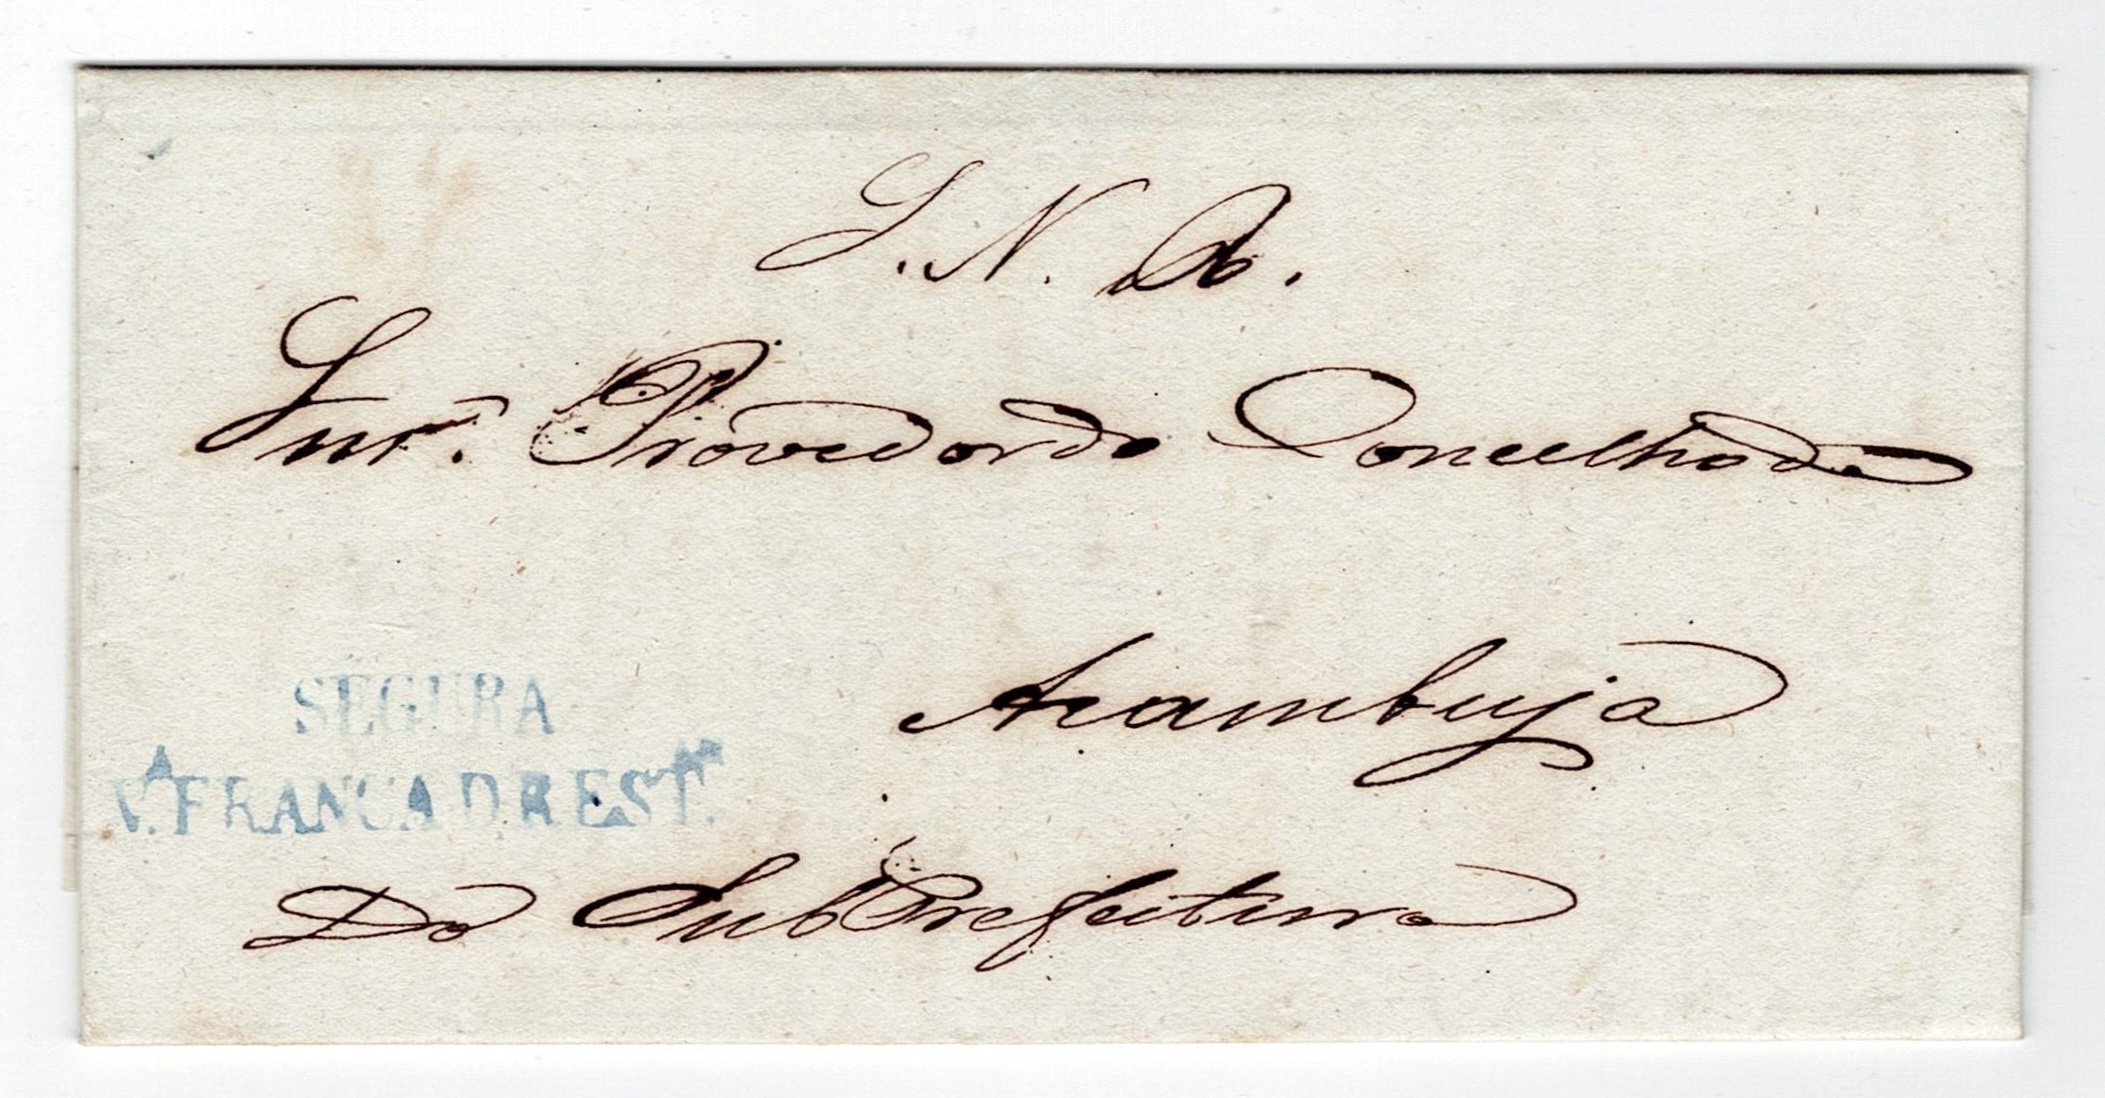 S. N. R.
Snr. Provedor do Concelho da
Azambuja
SEGURA
V.A FRANCA D. R. EST.RA
Do SubPrefeitura